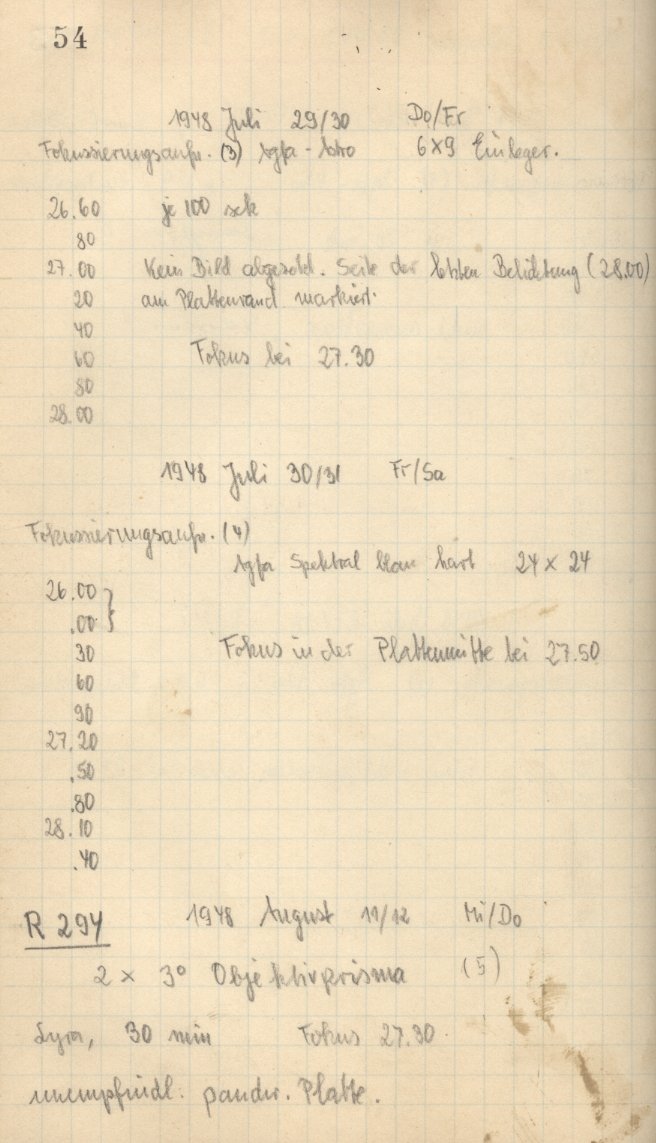 54
1948 Juli 29/30 Do/Fr
Fokussierungsaufn. (3) Agfa-Astro 6x9 Einleger.
26.60 je 100 sek
80
27.00 Kein Bild abgezählt. Seite der letzten Belichtung (28.00)
20 am Plattenrand markiert.
40
60 Fokus bei 27.30
80
28.00
1948 Juli 30/31 Fr/Sa
Fokussierungsaufn. (4)
Agfa Spektral blau hart 24 x 24
26.00 }
.00
30 Fokus in der Plattenmitte bei 27.50
60
90
27.20
.50
.80
28.10
.40
R 294 1948 August 11/12 Mi/Do
2 x 3° Objektivprisma (5)
Lyra, 30 min Fokus 27.30
unempfindl. panchr. Platte.